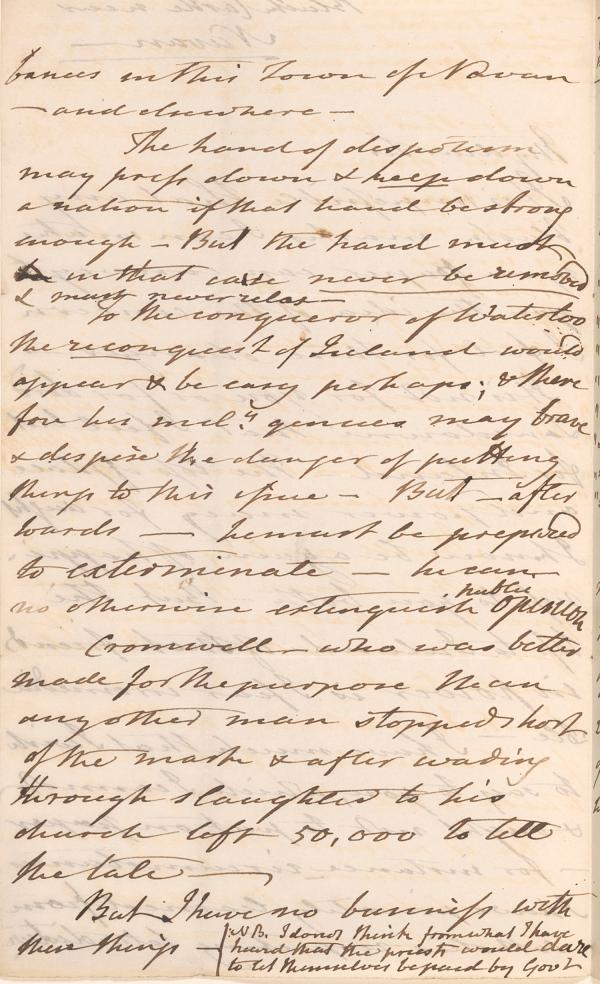 bances in this Town of Navan
— and elsewhere —
The hand of despotism
may press down & keep down
a nation if that hand be strong
enough — But the hand must
in that case never be removed
& must never relax —
To the conqueror of Waterloo
the reconquest of Ireland would
appear & be easy perhaps; & there
fore his mil.y genius may brave
& despise the danger of putting
things to this issue — But — after
wards — he must be prepared
to exterminate — he can
no otherwise extinguish public opinion
Cromwell — who was better
made for the purpose than
any other man stopped short
of the mark & after wading
through slaughter to his
church left 50,000 to tell
the tale —
But I have no business with
these things —
N.B. I do not think from what I have
heard that the priests would dare
to let themselves be paid by Govt